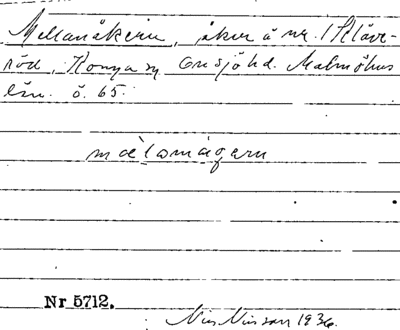 Mellanåkern, åker å nr. 1 Kläve-
röd, Konga sn Onsjö hd. Malmöhus
län. ö. 65.
mɛ̀lamågarn
Nr 5712.
Nils Nilsson 1936.